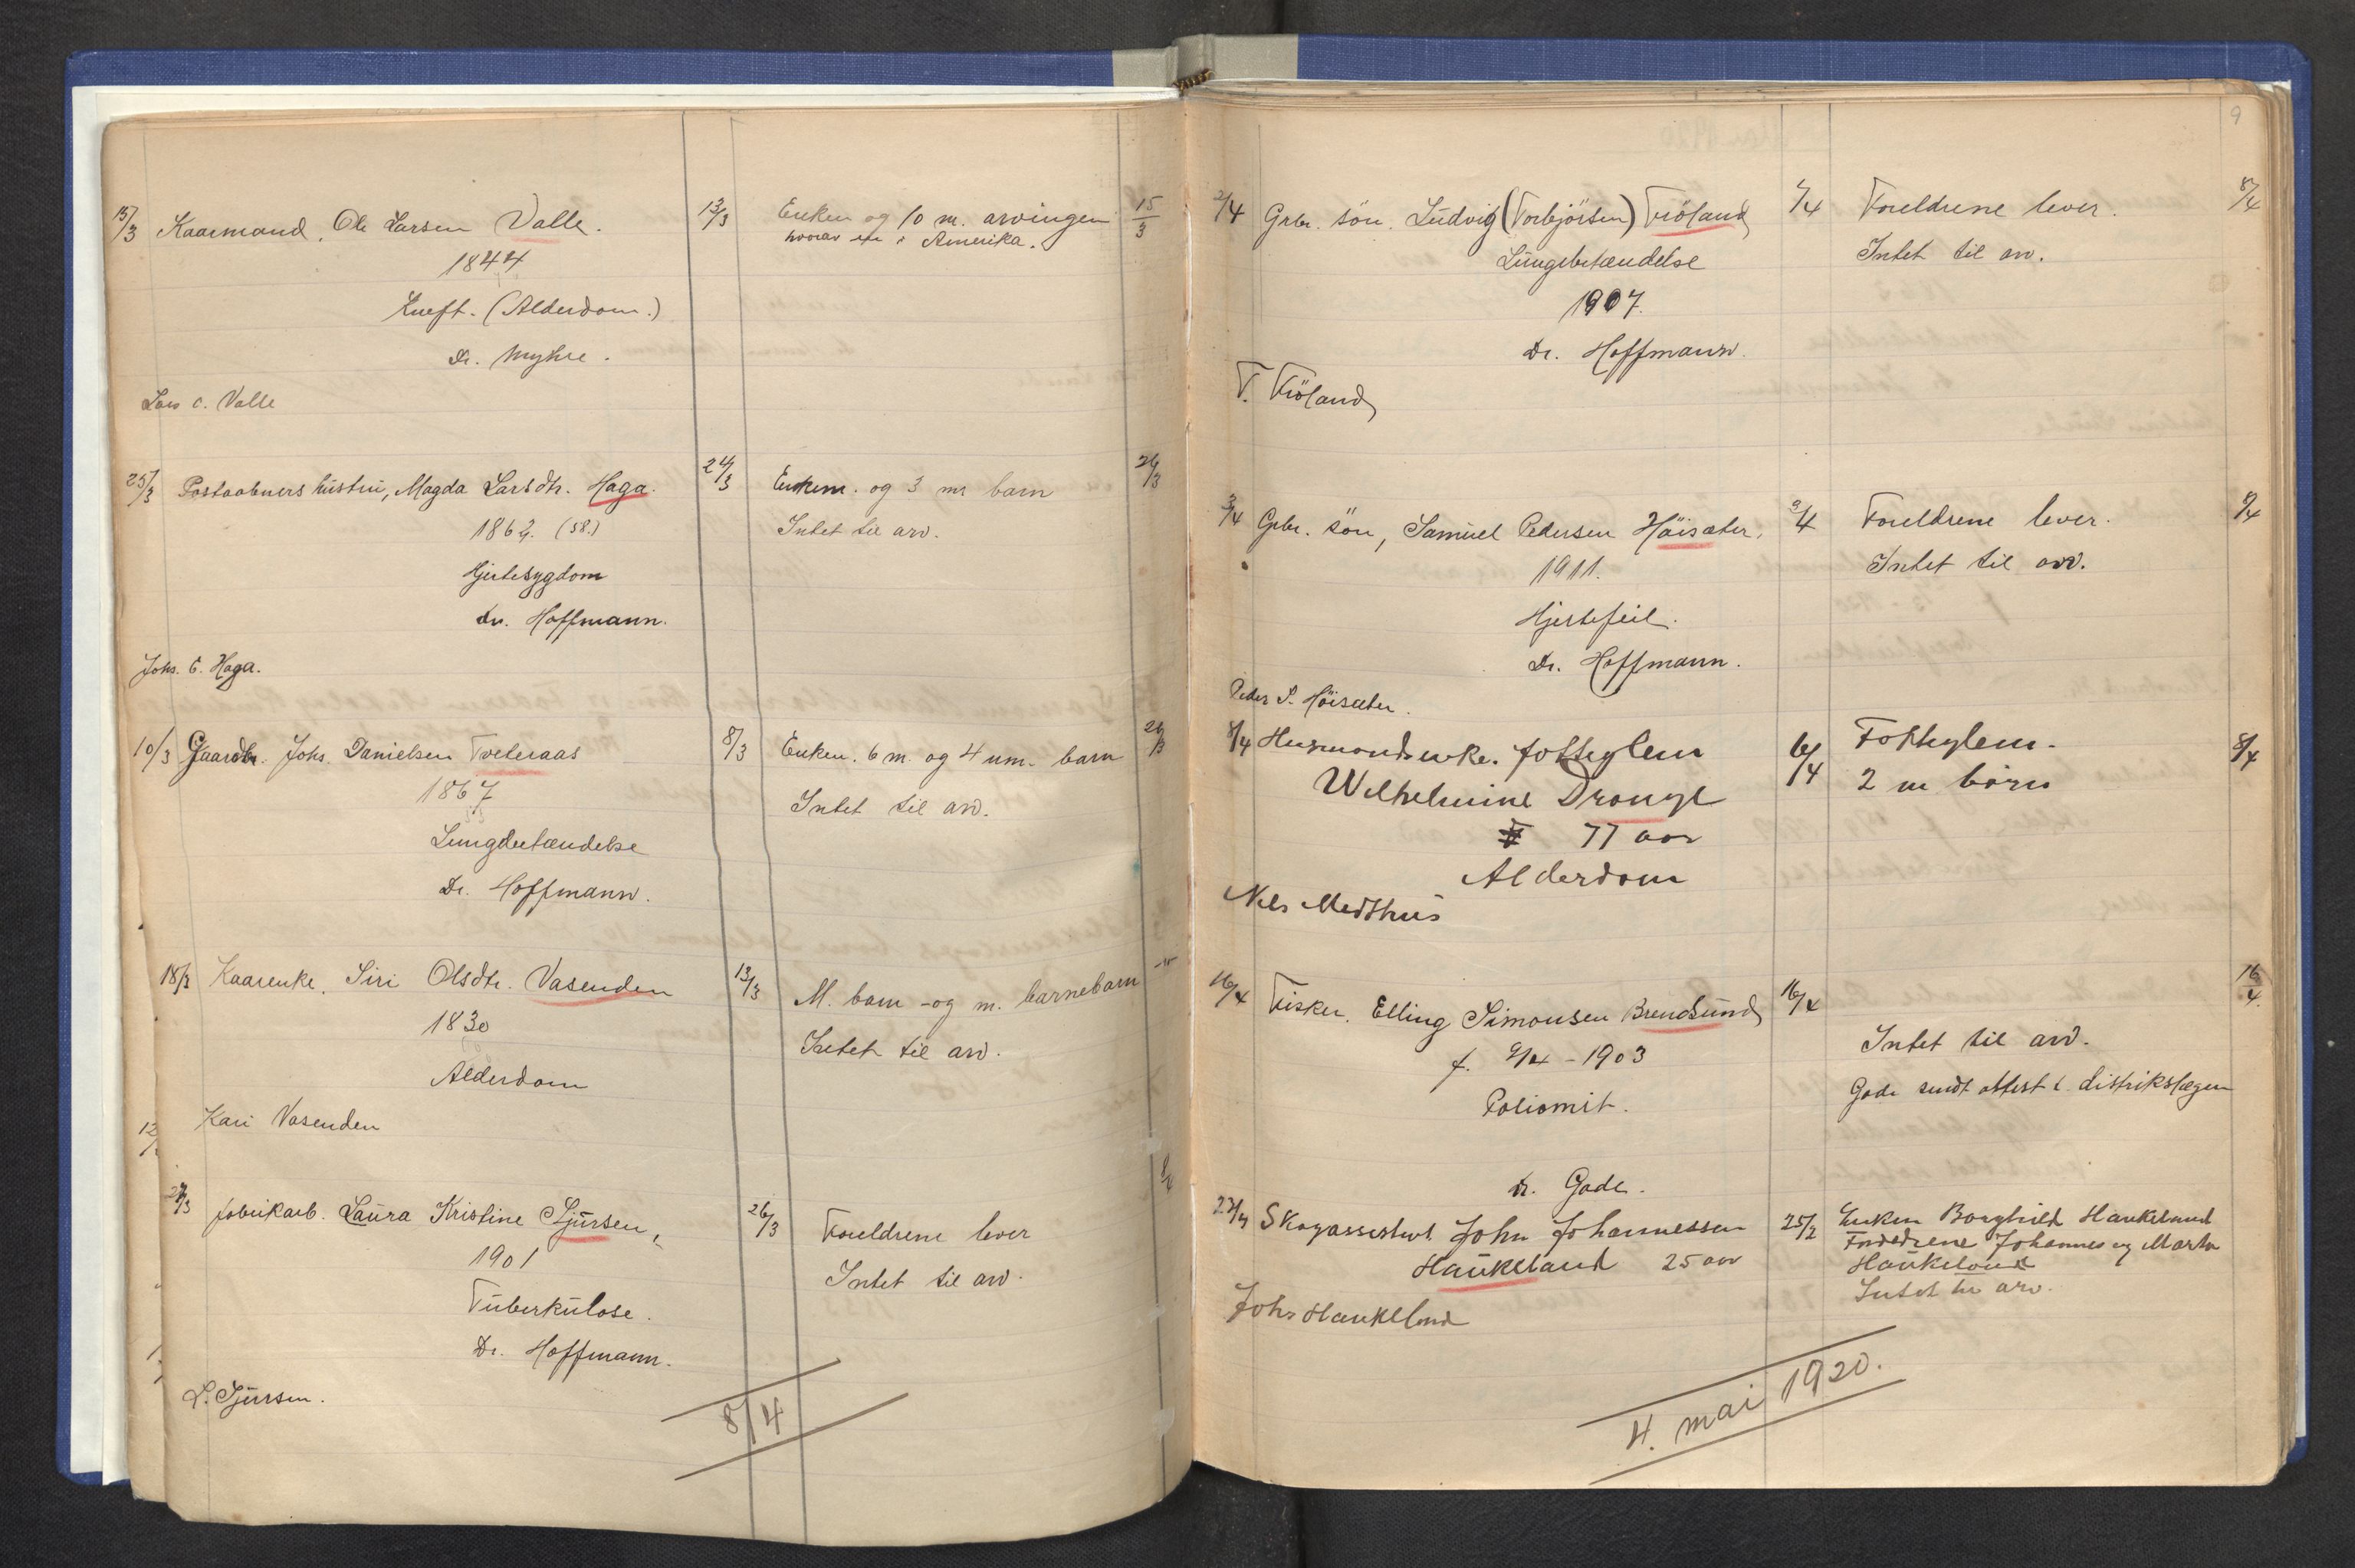 15/3 Kaarmand, Ole Larsen Valle. 13/3 Enken og 10 m. arvingen 15/3
hvorav en i Amerika.
1844
Kreft. (Alderdom.)
Dr. Myhre.
Lars O. Valle
25/3 Postaabners hustru, Magda Larsdtr. Haga. 24/3 Enkem. og 3 m barn 26/3
1862. (58.) Intet til arv.
Hjertesygdom
Dr. Hoffmann.
Johs. E. Haga.
10/3 Gaardbr. Johs. Danielsen Tveteraas 8/3 Enken. 6 m. og 4 um. barn 26/3
1867 Intet til arv.
Lungebetændelse
Dr. Hoffmann.
18/3 Kaarenke, Siri Olsdtr. Vasenden 13/3 M. barn - og m. barnebarn -"-
1830 Intet til arv.
Alderdom
Kari Vasenden
27/3 Fabrikarb. Laura Kristine Sjursen, 26/3 Foreldrene lever 8/4
1901 Intet til arv.
Tuberkulose.
Dr. Hoffmann.
L. Sjursen.
8/4
9
2/4 Grbr. søn. Ludvig (Torbjörsen) Fröland 1/4 Foreldrene lever. 8/4
Lungebetændelse Intet til arv.
1907.
Dr. Hoffmann.
T. Fröland
3/4 Grbr. søn, Samuel Pedersen Höisæter, 2/4 Foreldrene lever. 8/4
1911. Intet til arv.
Hjertefeil.
Dr. Hoffmann.
Peder S. Höisæter.
8/4 Husmandsenke. fattiglem 6/4 Fattiglem. 8/4
Wilhelmine Drange 2 m börn
77 aar
Alderdom
Nils Medthus
16/4 Fisker. Elling Simonsen Brendsund 16/4 16/4
f. 9/4 - 1903 Intet til arv.
Poliomit. Gade sendt attest t. distrikslægen
Dr. Gade.
23/4 Skogassistent John Johannessen 25/2 Enken Borghild Haukeland
Haukeland 25 aar Foreldrene Johannes og Marta
Haukeland
Johs Haukeland Intet til arv.
4. mai 1920.